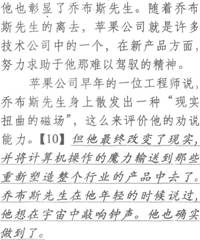 他也彰显了乔布斯先生。随着乔布
斯先生的离去，苹果公司就是许多
技术公司中的一个，在新产品方面，
努力求助于他那难以驾驭的精神。
苹果公司早年的一位工程师说，
乔布斯先生身上散发出一种“现实
扭曲的磁场”，这么来评价他的劝说
能力。【10】但他最终改变了现实，
并将计算机操作的魔力输送到那些
重新塑造整个行业的产品中去了。
乔布斯先生在他年轻的时候说过，
他想在宇宙中敲响钟声。他也确实
做到了。